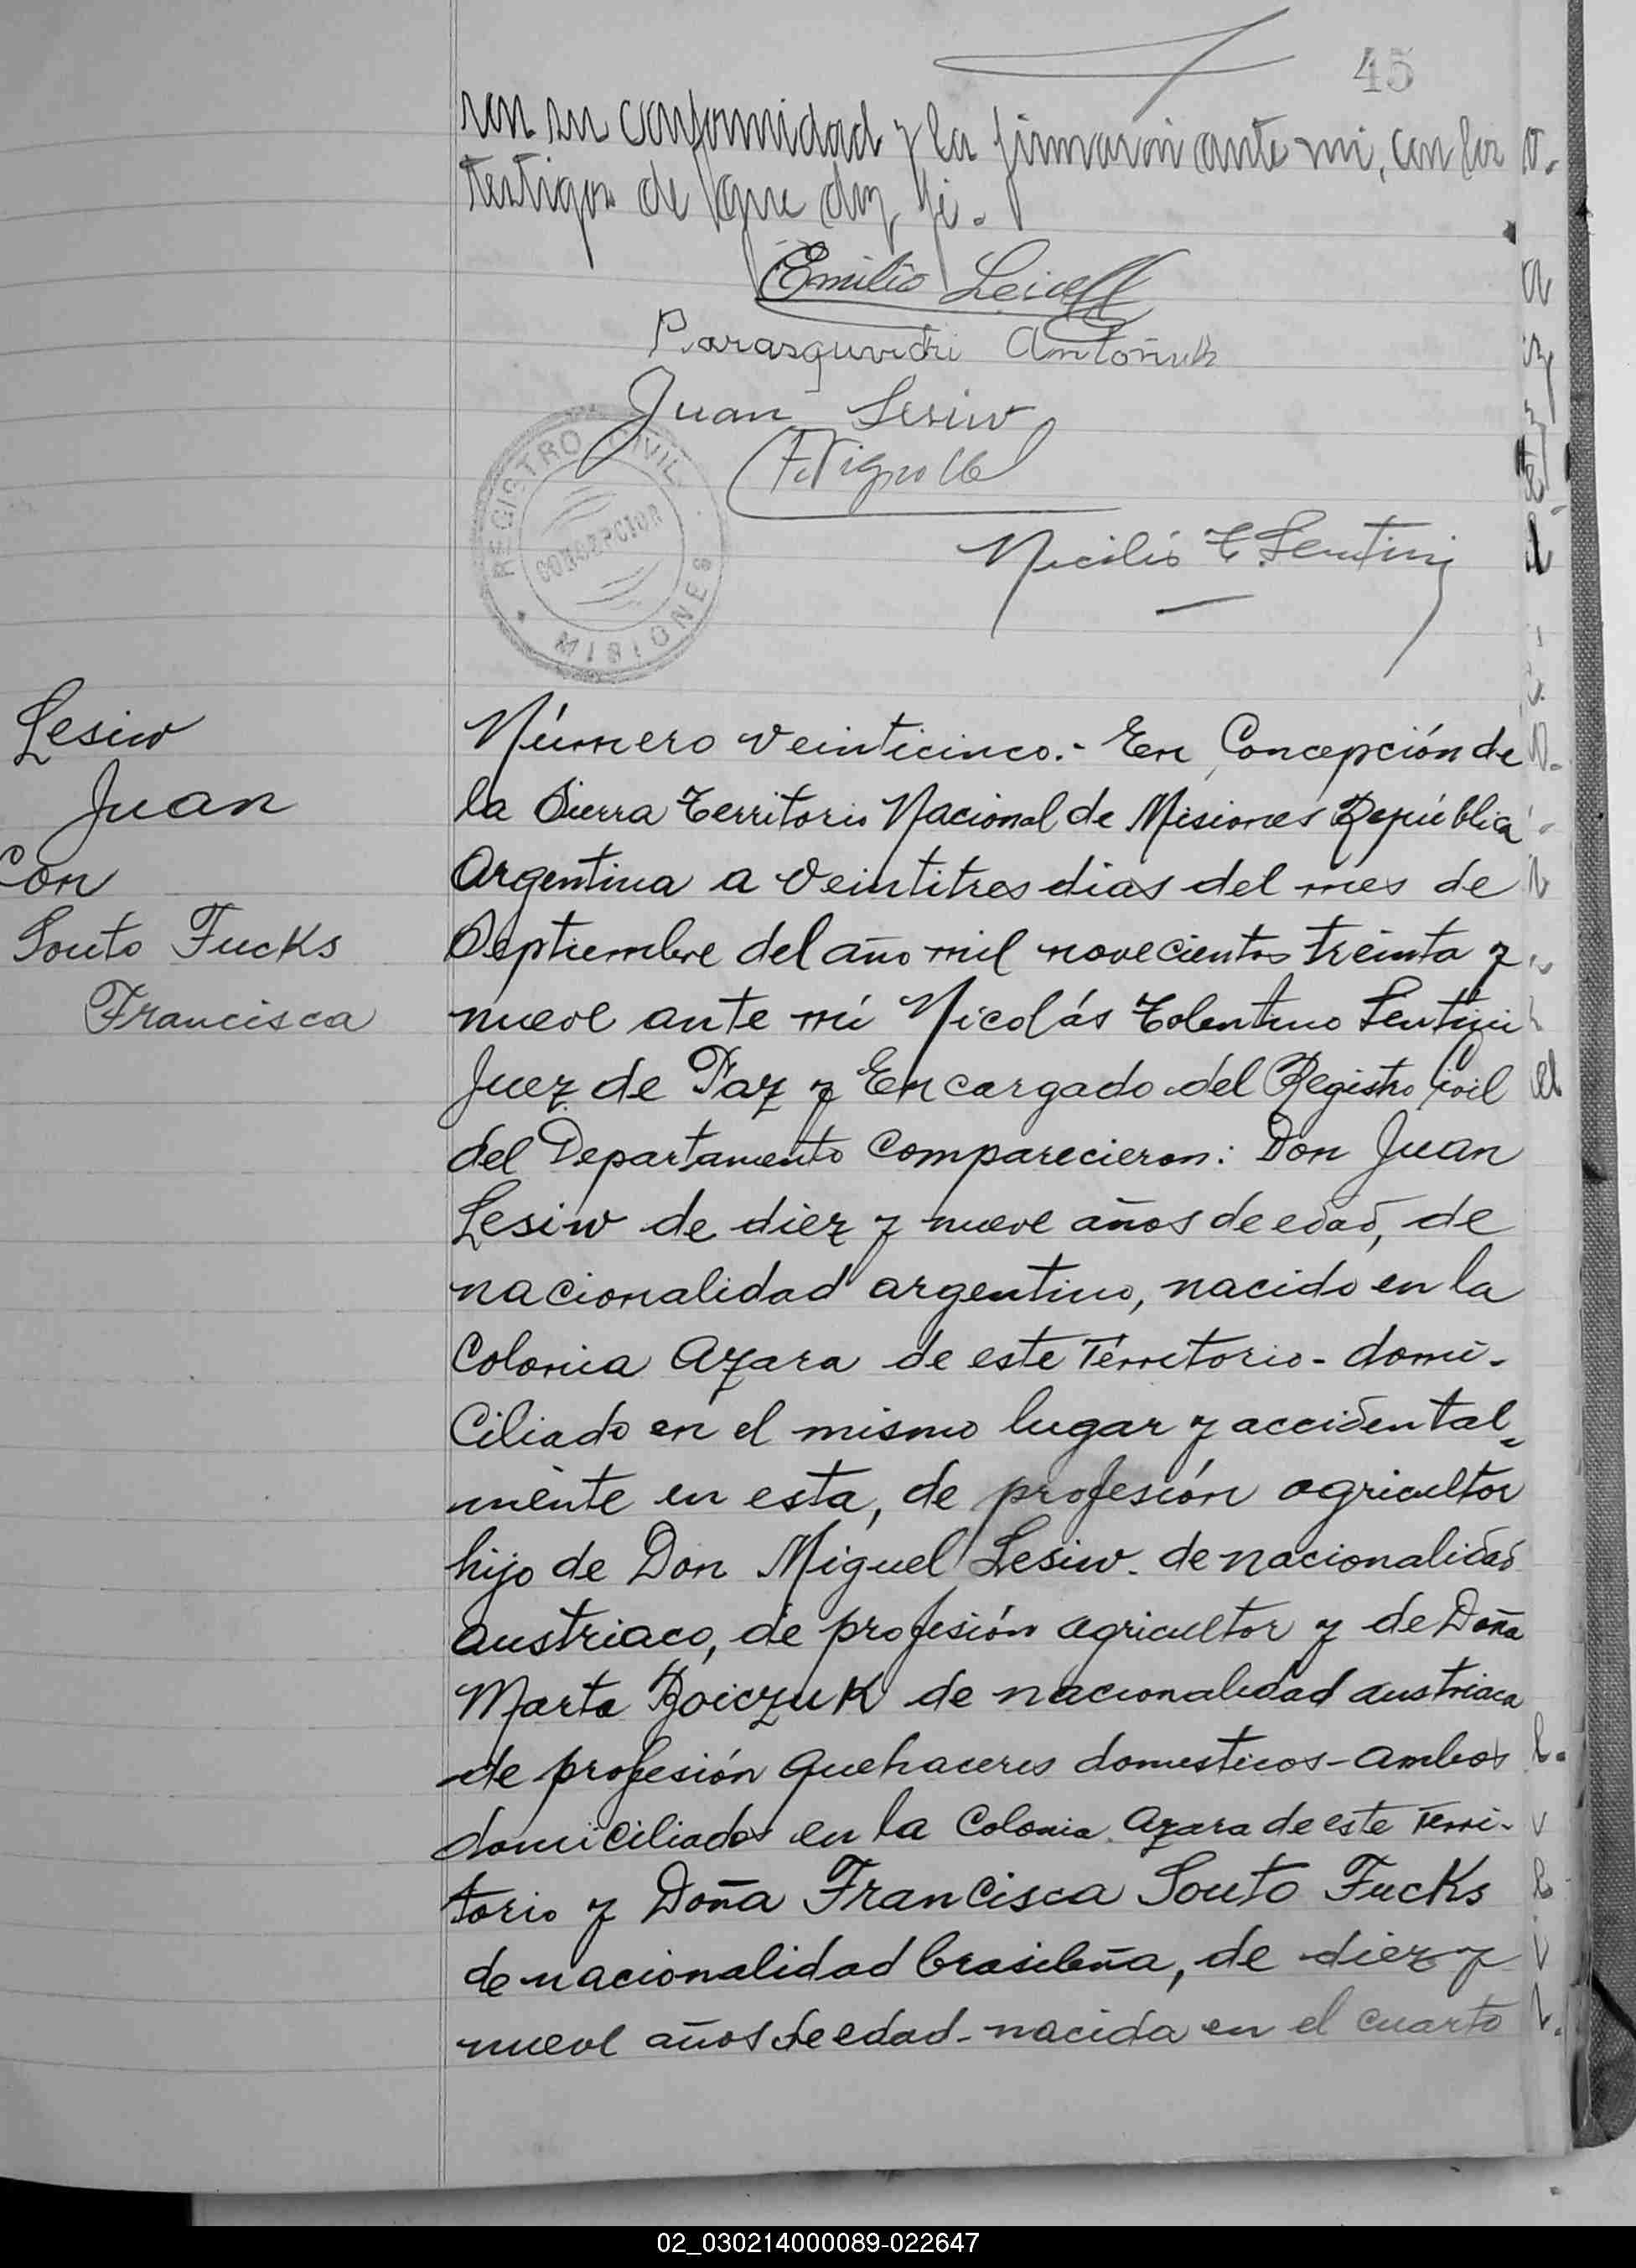 45
ron su conformidad y la firmaron ante mi, con los
testigos de que doy fé.
Emilio
Juan Lesiw
REGISTRO CIVIL
CONCEPCION
MISIONES
Lesiw
Juan
Con
Souto Fucks
Francisca
Número veinticinco.- En Concepción de
la Sierra Territorio Nacional de Misiones República
Argentina a veintitres dias del mes de
Septiembre del año mil novecientos treinta y
nueve ante mí Nicolás Tolentino Sentini
Juez de Paz y Encargado del Registro Civil
del Departamento Comparecieron: Don Juan
Lesiw de diez y nueve años de edad, de
nacionalidad argentino, nacido en la
Colonia Azara de este Territorio- domi-
ciliado en el mismo lugar y accidental=
mente en esta, de profesión agricultor
hijo de Don Miguel Lesiw. de nacionalidad
austriaco, de profesión agricultor y de Doña
Marta Boiczuk de nacionalidad austriaca
de profesión quehaceres domesticos-ambos
domiciliados en la Colonia Azara de este Terri-
torio y Doña Francisca Souto Fucks
de nacionalidad brasileña, de diez y
nueve años de edad-nacida en el cuarto
02_030214000089-022647